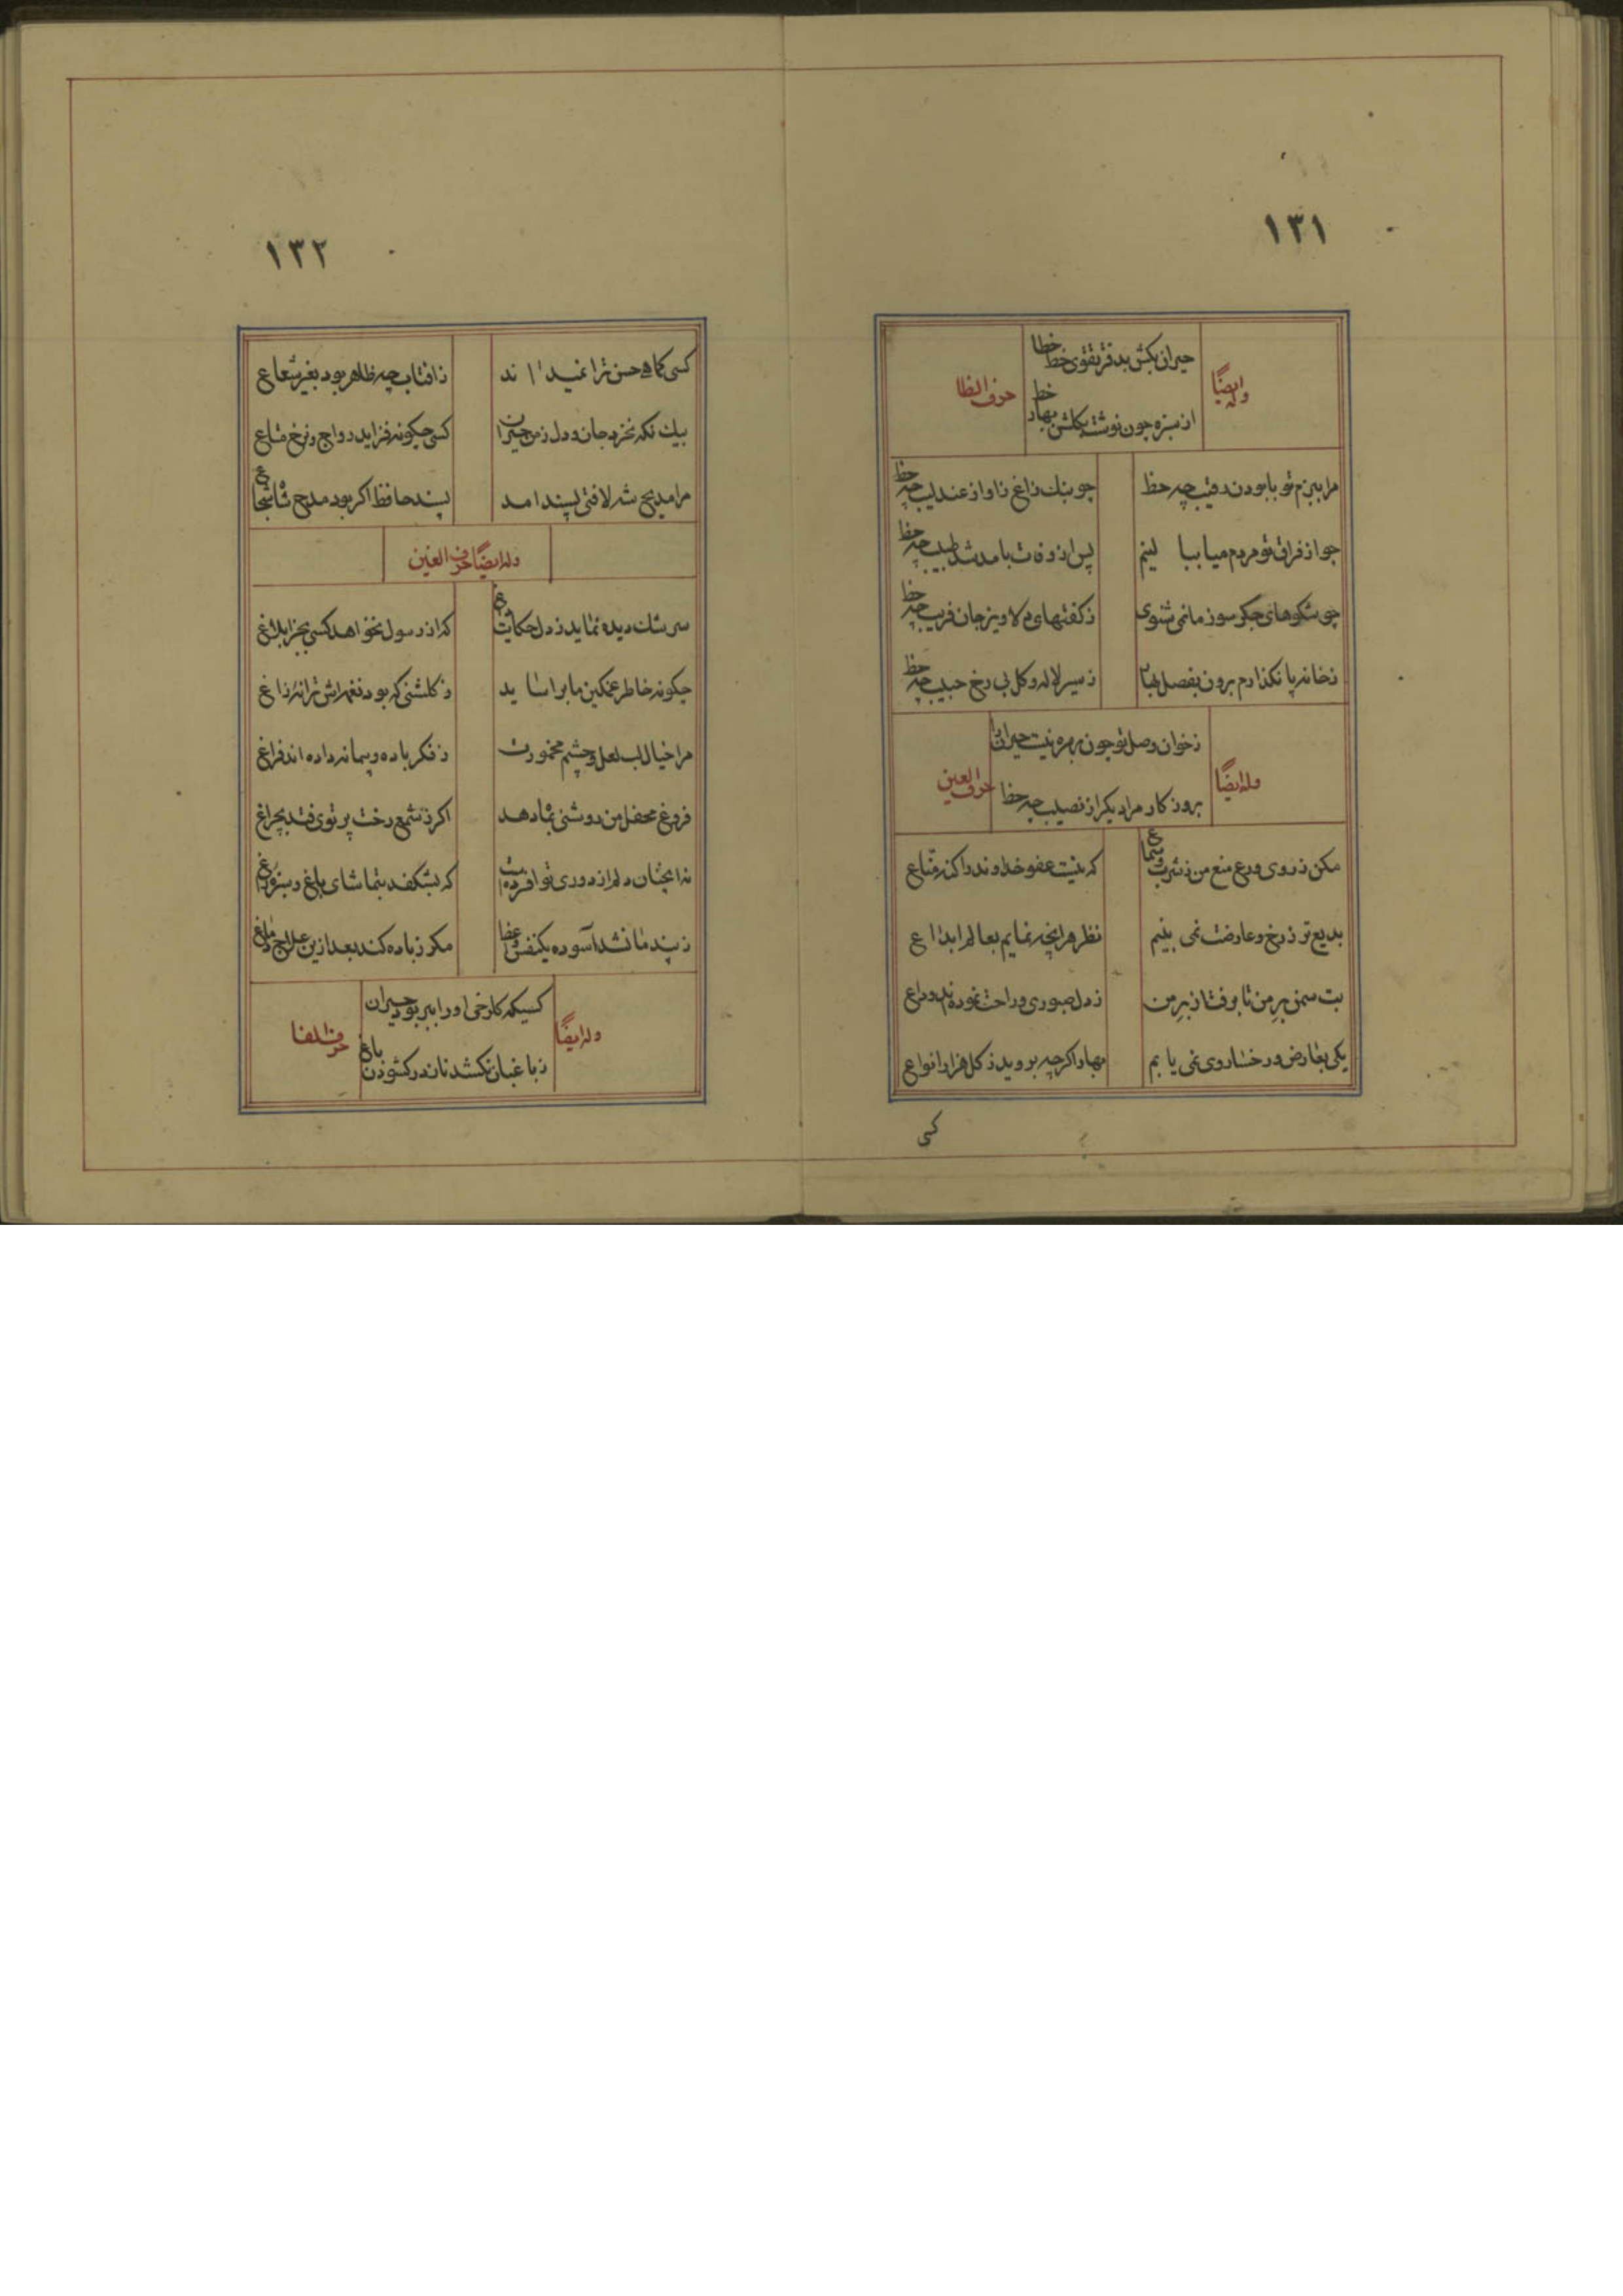 ١٣١
وله ایضًا
حیران بکش بدفتر تقوی خط خطا
از سبزه چون نوشته بکلشن بهار خط
حرف الظا
مرا ببزم تو با بودن رقیب چه حظ
چو بنك زاغ ز اواز عندلیب چه حظ
چو از فراق تو مردم میا ببا لینم
پس از وفات بامد شد طبیب چه حظ
چو شکوهای جکر سوز ما نمی شنوی
ز کفتهای دلاویز جان فریب چه حظ
ز خانه پا نکذارم برون بفصل بهار
ز سیر لاله و کل بی رخ حبیب چه حظ
وله ایضًا
ز خوان وصل تو چون بهره نیست حیران را
بروز کار مرا دیکر از نصیب چه حظ
حرف العین
مکن ز روی ورع منع من ز شرب و سماع
که نیست عفو خداوند را کنه مناع
بدیع تر ز رخ و عارضت نمی بینم
نظر هر انچه نمایم بعالم ابداع
بت سمن بر من تا برفت از بر من
ز دل صبوری و راحت نموده اند وداع
یکی بعارض و رخسار وی نمی یا بم
بهار اکرچه بروید ز کل هزار انواع
کسی
١٣٢
کسی کماهی حسن ترا نمید ا ند
ز افتاب چه ظاهر بود بغیر شعاع
بیك نکه نخرد جان و دل ز من حیران
کسی چکونه فزاید رواج و نرخ متاع
مرا مدیح شه لا فتی پسند امد
پسند حافظ اکر بود مدح شاه شجاع
وله ایضًا حرف الغین
سرشك دیده نماید ز دل حکایت داغ
که از رسول نخواهد کسی بجز ابلاغ
چکونه خاطر غمکین ما براسا ید
ز کلشنی که بود نغمه اش ترانه زاغ
مرا خیال لب لعل و چشم مخمورت
ز فکر باده و پیمانه داده اند فراغ
فروغ محفل من روشنی بماه دهد
اکر ز شمع رخت پرتوی فتد بچراغ
نه انچنان دلم از دوری تو افسرده است
که بشکفد بتماشای باغ و سبزه راغ
ز پند ما نشد آسوده یکنفس واعظ
مکر زباده کند بعد ازین علاج دماغ
وله ایضًا
کسیکه کلرخی او را ببر بود حیران
ز باغبان نکشد ناز در کشودن باغ
حرف الفا